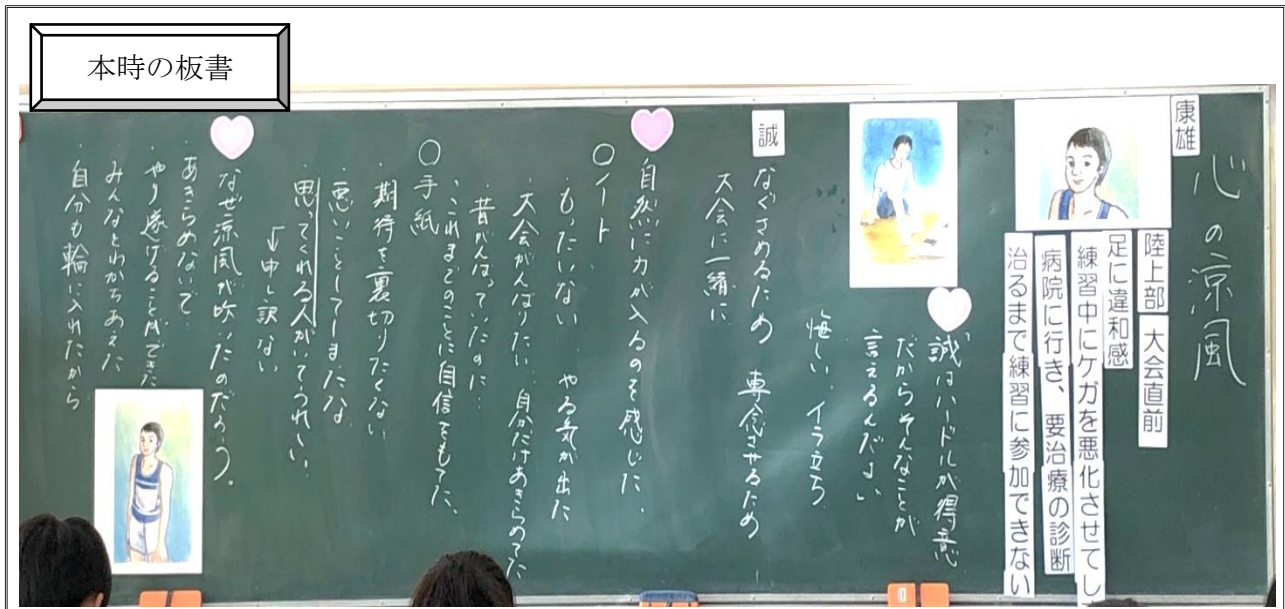 本時の板書
心の涼風
康雄
陸上部 大会直前
足に違和感
練習中にケガを悪化させてし
病院に行き、要治療の診断
治るまで練習に参加できない
「誠はハードルが得意
だからそんなことが
言えるんだよ」
悔しい、イラ立ち
誠
なぐさめるため 専念させるため
大会に一緒に
自然に力が入るのを感じた、
○ノート
・もったいない やる気が出た
・大会がんばりたい 自分だけあきらめてた
・昔がんばっていたのに…
・これまでのことに自信をもてた、
○手紙
・期待を裏切りたくない
・悪いことしてしまったな
・思ってくれる人がいてうれしい、
↓申し訳ない
なぜ涼風が吹いたのだろう。
・あきらめないで…
・やり遂げることができた
・みんなとわかちあえた
・自分も輪に入れたから